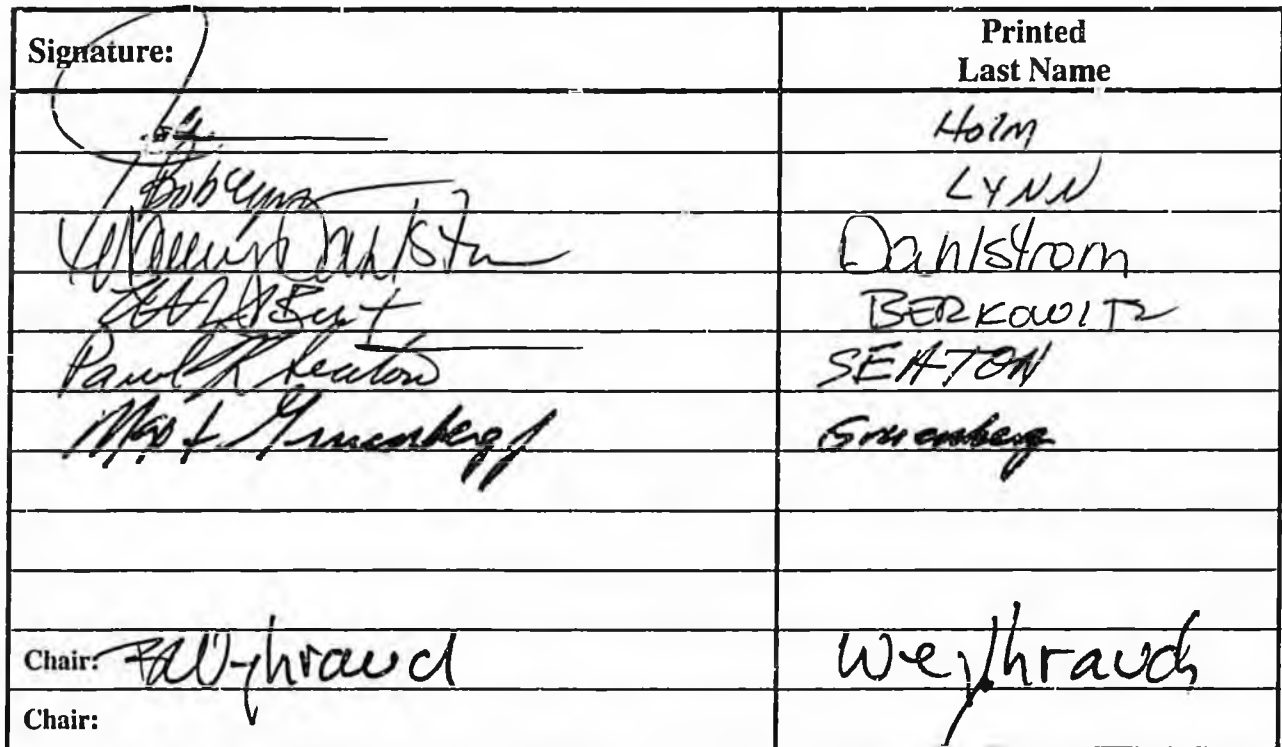 Signature: Printed
Last Name
Holm
Bob Lynn LYNN
Dahlstrom Dahlstrom
BERKOWITZ
Paul K Seaton SEATON
Max F Gruenberg Gruenberg
Chair: Weyhrauch
Chair: